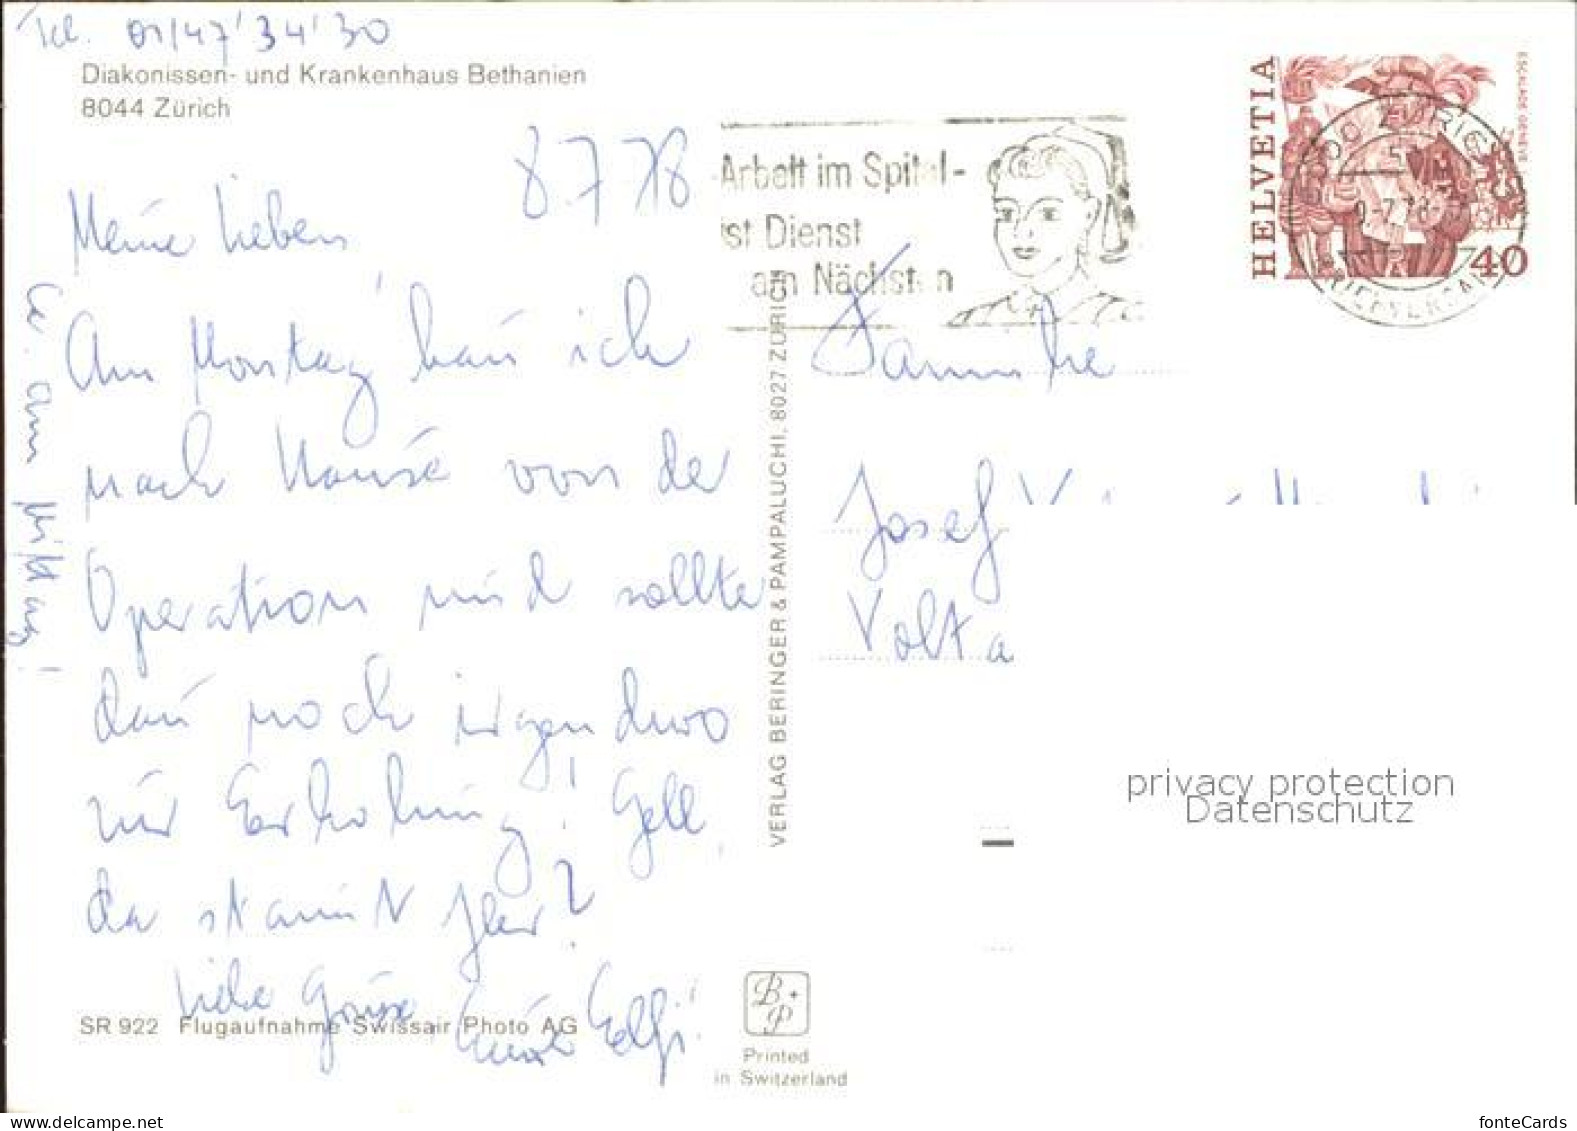 Tel. 01/47'34'30
Diakonissen- und Krankenhaus Bethanien
8044 Zürich
8.7.78
Meine Lieben
Am Montag kann ich
nach Hause von der
Operation und sollte
dann noch irgendwo
zur Erholung! Gell,
da staunt Ihr?
Liebe Grüsse
Eure Elfi!
am Mittag!
SR 922 Flugaufnahme Swissair Photo AG
VERLAG BERINGER & PAMPALUCHI, 8027 ZÜRICH
B+P
Printed
in Switzerland
Arbeit im Spital -
ist Dienst
am Nächsten
HELVETIA
ESCALADE GENÈVE
40
ZÜRICH
BRIEFVERSAND
Familie
Josef
Volta
privacy protection
Datenschutz
delcampe.net
fonteCards